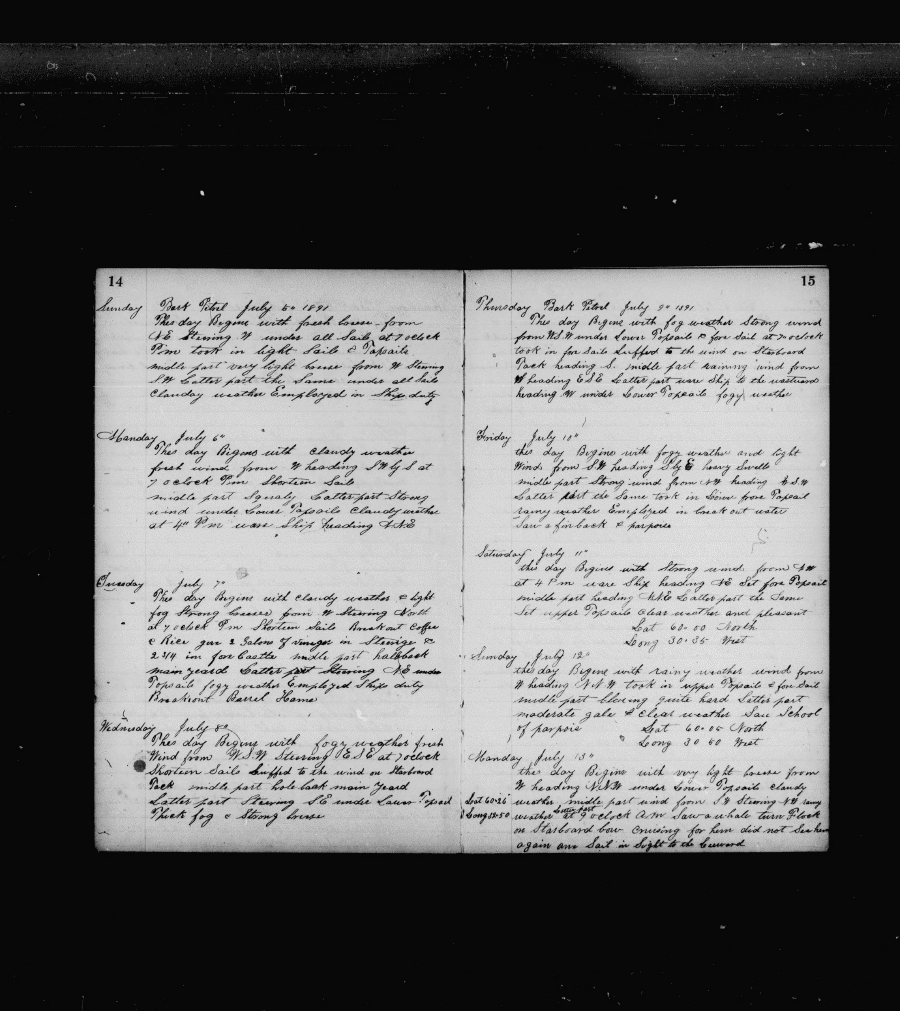 14
Sunday Bark Petrel July 5" 1891
This day Begins with fresh breese from
NE Stering W under all Sails at 7 oclock
P.m took in light Sails & Topsails
middle part very light breese from W Stering
S W Latter part the Same under all Sails
Claudy weather Employed in Ships duty
Manday July 6"
This day Begins with Claudy weather
fresh wind from W heading SW by S at
7 oclock P.m Shorten Sails
middle part Squaly Latter part Strong
wind under Lower Topsails Claudy weather
at 4" P m ware Ship heading NNE
Tuesday July 7"
This day Begins with claudy weather & light
fog Strong breese from W Stering North
at 7 oclock P.m Shorten Sails Breakout Coffee
& Rice gave 2 Galons of vineger in Sterige &
2 3/4 in fore Castle middle part haleback
main yeard Latter part Stering NE under
Topsails fogy weather Employed Ships duty
Breakout Barrel Hams
Wednusday July 8"
This day Begins with fogy weather fresh
Wind from W.S.W Stering E S E at 7 oclock
Shorten Sails Luffed to the wind on Starboard
Tack middle part hole back main yeard
Latter part Stering SE under Lawer Topsail
Thick fog & Strong breese
15
Thursday Bark Petrel July 9" 1891
This day Begins with fog weather Strong wind
from W.S.W under Lower Topsails & fore Sail at 7 oclock
took in fore Sails Luffed to the wind on Starboard
Tack heading S. middle part raining wind from
W heading E S E Latter part ware Ship to the westward
heading W under Lower Topsails fogy weather
Friday July 10"
this day Begins with fogy weather and light
Wind from S W heading S by E heavy Swells
middle part Strong wind from NW heading W.S.W
Latter part the Same took in Lower fore Topsail
rainy weather Employed in break out water
Saw a finback & porpoise
Saturday July 11"
this day Begins with Strong wind from NW
at 4 P.m ware Ship heading NE Set fore Topsail
middle part heading NNE Latter part the Same
Set upper Topsails Clear weather and pleasant
Lat 60-00 North
Long 30-35 West
Sunday July 12"
this day Begins with rainy weather wind from
W heading N.N.W took in upper Topsails & fore Sail
middle part blowing quite hard Latter part
moderate gale & Clear weather Saw School
of porpois Lat 60-05 North
Long 30 50 West
Manday July 13"
the day Begins with very light breese from
W heading N.N.W under Lower Topsails Claudy
Lat 60-26 weather middle part wind from SW Stering NW rainy
Long 32-50 weather Latter part at 9 oclock A.M Saw a whale turn Flock
on Starboard bow Cruising for hem did not See hem
again one Sail in Sight to the Leeward